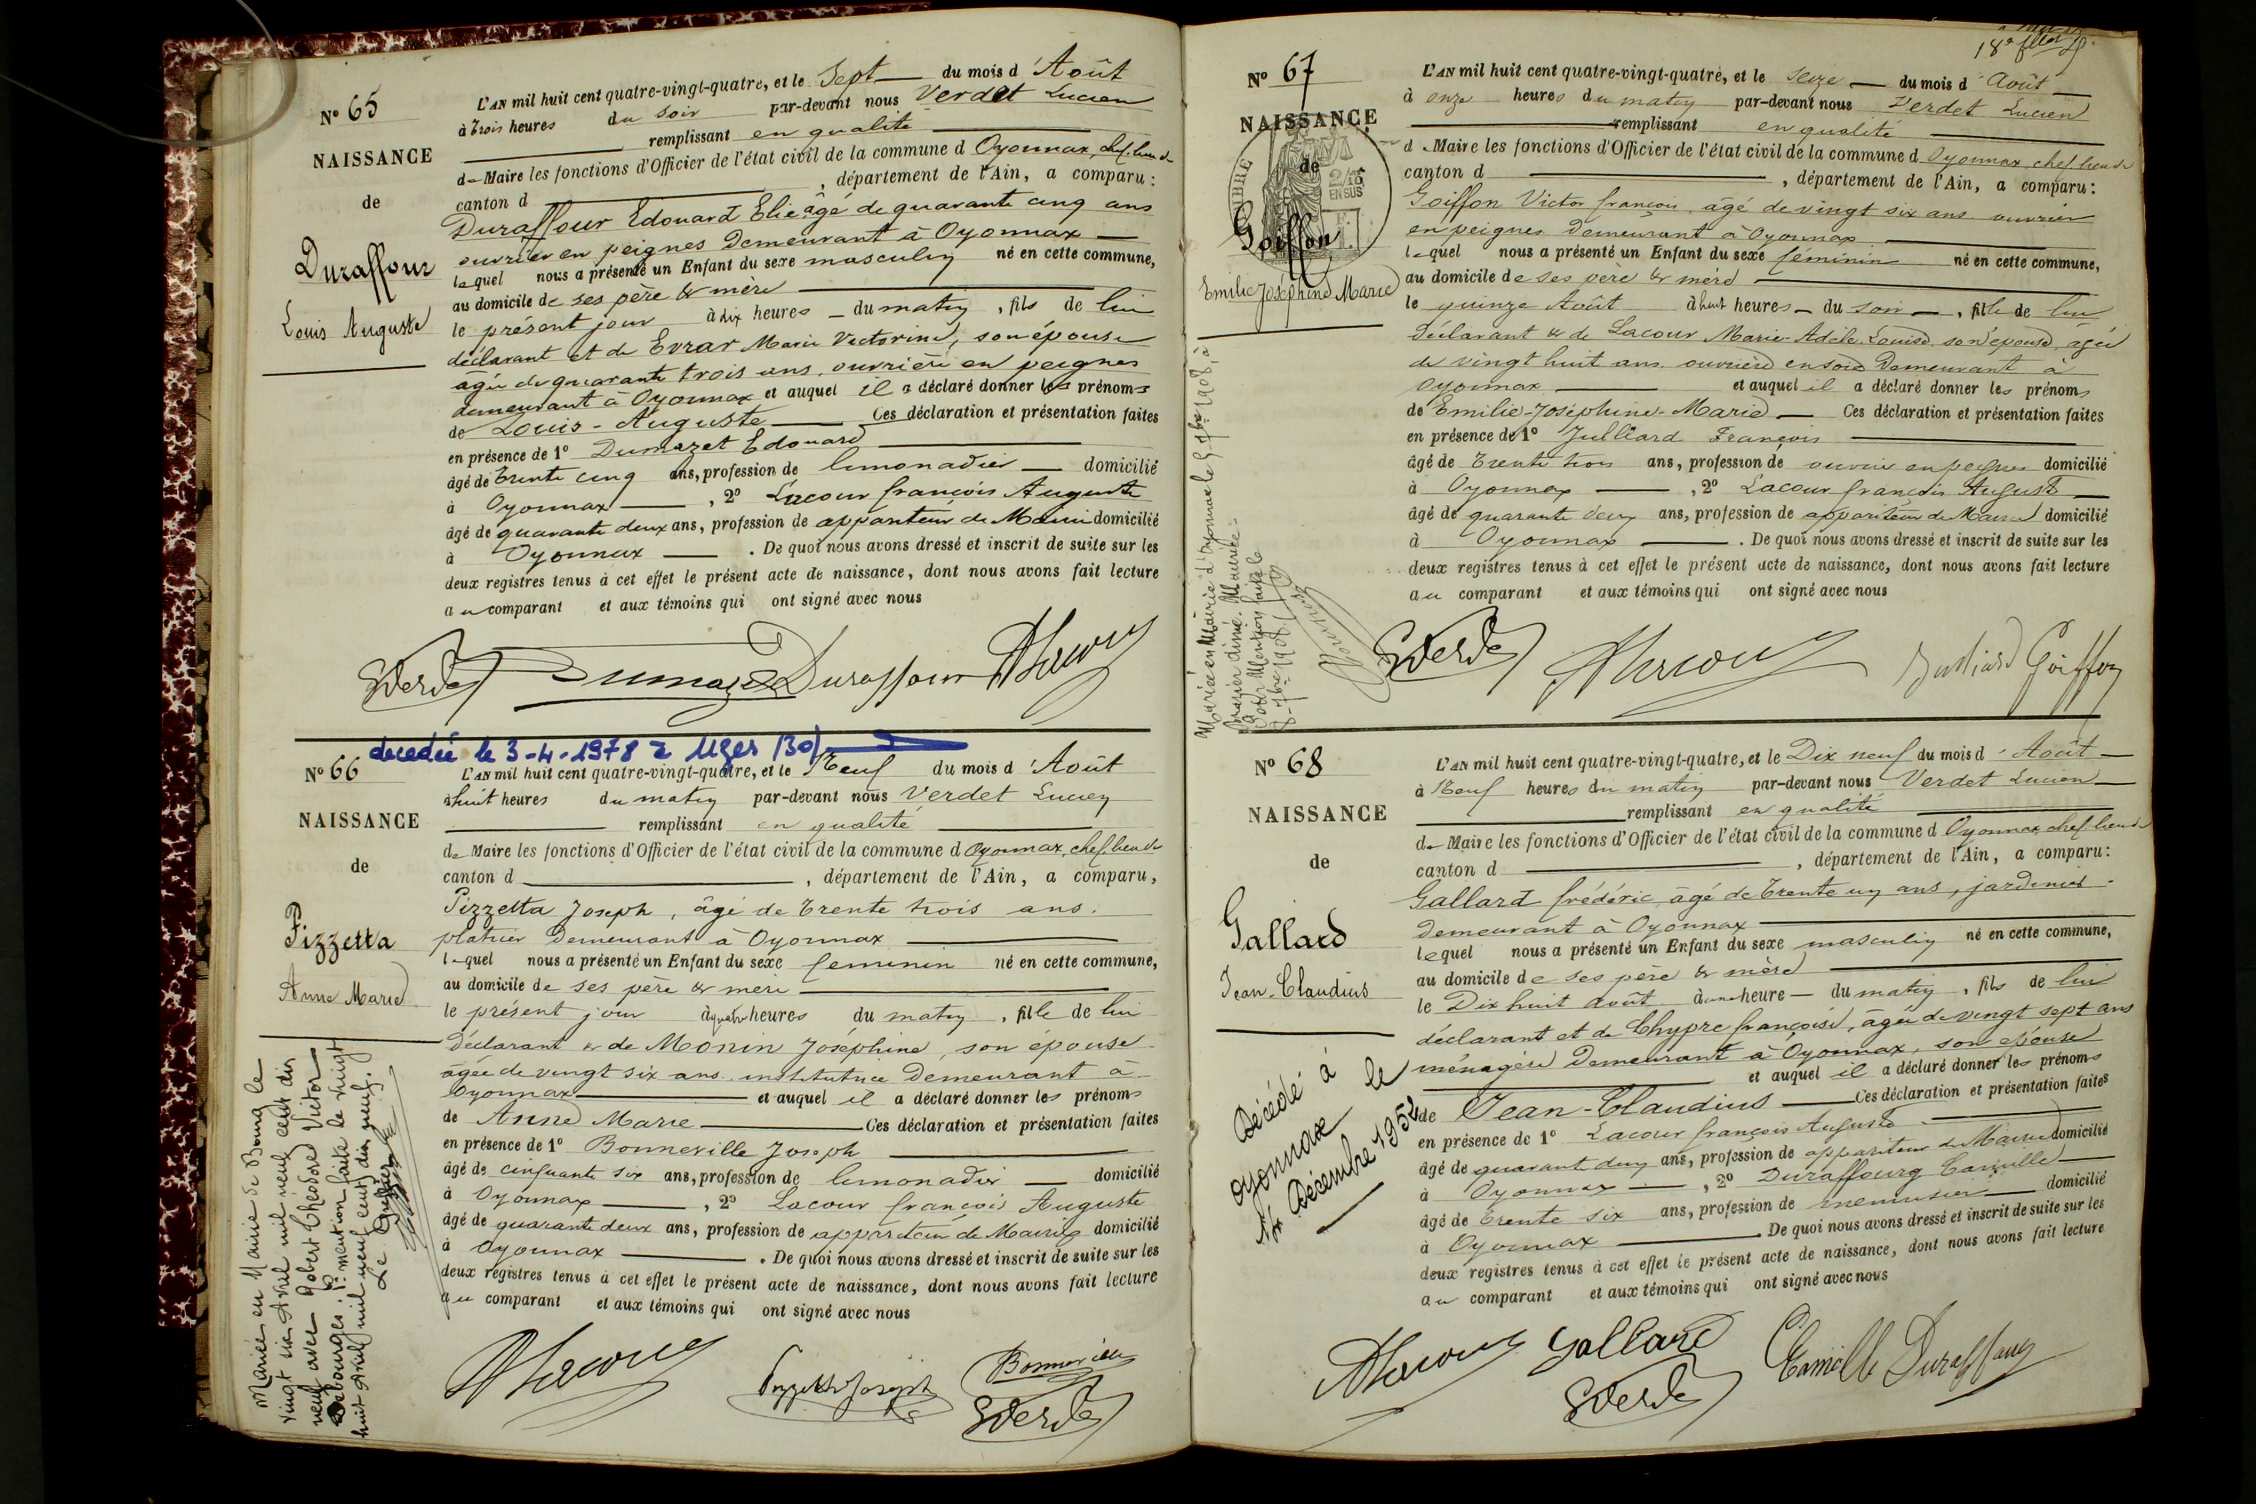 N° 65
NAISSANCE
de
Duraffour
Louis Auguste
L'AN mil huit cent quatre-vingt-quatre, et le Sept du mois d'Août
à trois heures du soir par-devant nous Verdet Lucien
remplissant en qualité
de Maire les fonctions d'Officier de l'état civil de la commune d Oyonnax, chef lieu de
canton d , département de l'Ain, a comparu :
Duraffour Edouard Elie âgé de quarante cinq ans
ouvrier en peignes demeurant à Oyonnax
lequel nous a présenté un Enfant du sexe masculin né en cette commune,
au domicile de ses père & mère
le présent jour à dix heures du matin , fils de lui
déclarant et de Evrar Marie Victorine, son épouse
agée de quarante trois ans, ouvrière en peignes
demeurant à Oyonnax et auquel il a déclaré donner les prénoms
de Louis-Auguste Ces déclaration et présentation faites
en présence de 1° Dumazet Edouard
âgé de trente cinq ans, profession de limonadier domicilié
à Oyonnax , 2° Lacour françois Auguste
âgé de quarante deux ans, profession de appariteur de Mairie domicilié
à Oyonnax . De quoi nous avons dressé et inscrit de suite sur les
deux registres tenus à cet effet le présent acte de naissance, dont nous avons fait lecture
au comparant et aux témoins qui ont signé avec nous
Verdet Dumazet Duraffour ALacour
decedée le 3-4-1978 à Uzes (30)
N° 66
NAISSANCE
de
Pizzetta
Anne Marie
L'AN mil huit cent quatre-vingt-quatre, et le Neuf du mois d'Août
à huit heures du matin par-devant nous Verdet Lucien
remplissant en qualité
de Maire les fonctions d'Officier de l'état civil de la commune d Oyonnax, chef lieu de
canton d , département de l'Ain, a comparu,
Pizzetta Joseph, âgé de trente trois ans.
platrier demeurant à Oyonnax
lequel nous a présenté un Enfant du sexe féminin né en cette commune,
au domicile de ses père & mère
le présent jour à quatre heures du matin , fille de lui
déclarant & de Monin Joséphine, son épouse
agée de vingt six ans institutrice demeurant à
Oyonnax et auquel il a déclaré donner les prénoms
de Anne Marie Ces déclaration et présentation faites
en présence de 1° Bonneville Joseph
âgé de cinquante six ans, profession de limonadier domicilié
à Oyonnax , 2° Lacour françois Auguste
âgé de quarante deux ans, profession de appariteur de Mairie domicilié
à Oyonnax . De quoi nous avons dressé et inscrit de suite sur les
deux registres tenus à cet effet le présent acte de naissance, dont nous avons fait lecture
au comparant et aux témoins qui ont signé avec nous
ALacour Pizzetta Joseph Bonneville
Verdet
Mariée en Mairie de Bourg le
vingt six Avril mil neuf cent dix
neuf avec Robert Théodore Victor
Debourges. Pr mention faite le vingt
huit Avril mil neuf cent dix neuf.
Le Greffier
18e fllet
N° 67
NAISSANCE
de
TIMBRE
2/10
EN SUS
Goiffon
Emilie Joséphine Marie
L'AN mil huit cent quatre-vingt-quatre, et le seize du mois d'Août
à onze heures du matin par-devant nous Verdet Lucien
remplissant en qualité
de Maire les fonctions d'Officier de l'état civil de la commune d Oyonnax chef lieu de
canton d , département de l'Ain, a comparu :
Goiffon Victor françois, âgé de vingt six ans ouvrier
en peignes demeurant à Oyonnax
lequel nous a présenté un Enfant du sexe féminin né en cette commune,
au domicile de ses père & mère
le quinze Août à huit heures du soir , fille de lui
déclarant & de Lacour Marie-Adèle Louise son épouse, agée
de vingt huit ans ouvrière en soie demeurant à
Oyonnax et auquel il a déclaré donner les prénoms
de Emilie-Joséphine-Marie Ces déclaration et présentation faites
en présence de 1° Julliard François
âgé de trente trois ans, profession de ouvrier en peignes domicilié
à Oyonnax , 2° Lacour françois Auguste
âgé de quarante deux ans, profession de appariteur de Mairie domicilié
à Oyonnax . De quoi nous avons dressé et inscrit de suite sur les
deux registres tenus à cet effet le présent acte de naissance, dont nous avons fait lecture
au comparant et aux témoins qui ont signé avec nous
Verdet ALacour Julliard Goiffon
Mariée en Mairie d'Oyonnax le 5 7bre 1908, à
Mention faite le
8 7bre 1908
N° 68
NAISSANCE
de
Gallard
Jean-Claudius
L'AN mil huit cent quatre-vingt-quatre, et le Dix neuf du mois d'Août
à Neuf heures du matin par-devant nous Verdet Lucien
remplissant en qualité
de Maire les fonctions d'Officier de l'état civil de la commune d Oyonnax, chef lieu de
canton d , département de l'Ain, a comparu :
Gallard frédéric, âgé de trente un ans, jardinier
demeurant à Oyonnax
lequel nous a présenté un Enfant du sexe masculin né en cette commune,
au domicile de ses père & mère
le Dix huit Août à une heure du matin , fils de lui
déclarant et de Chypre françoise, âgée de vingt sept ans
ménagère demeurant à Oyonnax, son épouse
et auquel il a déclaré donner les prénoms
de Jean-Claudius Ces déclaration et présentation faites
en présence de 1° Lacour françois Auguste
âgé de quarante deux ans, profession de appariteur de Mairie domicilié
à Oyonnax , 2° Duraffourg Camille
âgé de trente six ans, profession de menuisier domicilié
à Oyonnax De quoi nous avons dressé et inscrit de suite sur les
deux registres tenus à cet effet le présent acte de naissance, dont nous avons fait lecture
au comparant et aux témoins qui ont signé avec nous
ALacour Gallard Camille Duraffourg
Verdet
Décédé à
Oyonnax le
14 Décembre 1952